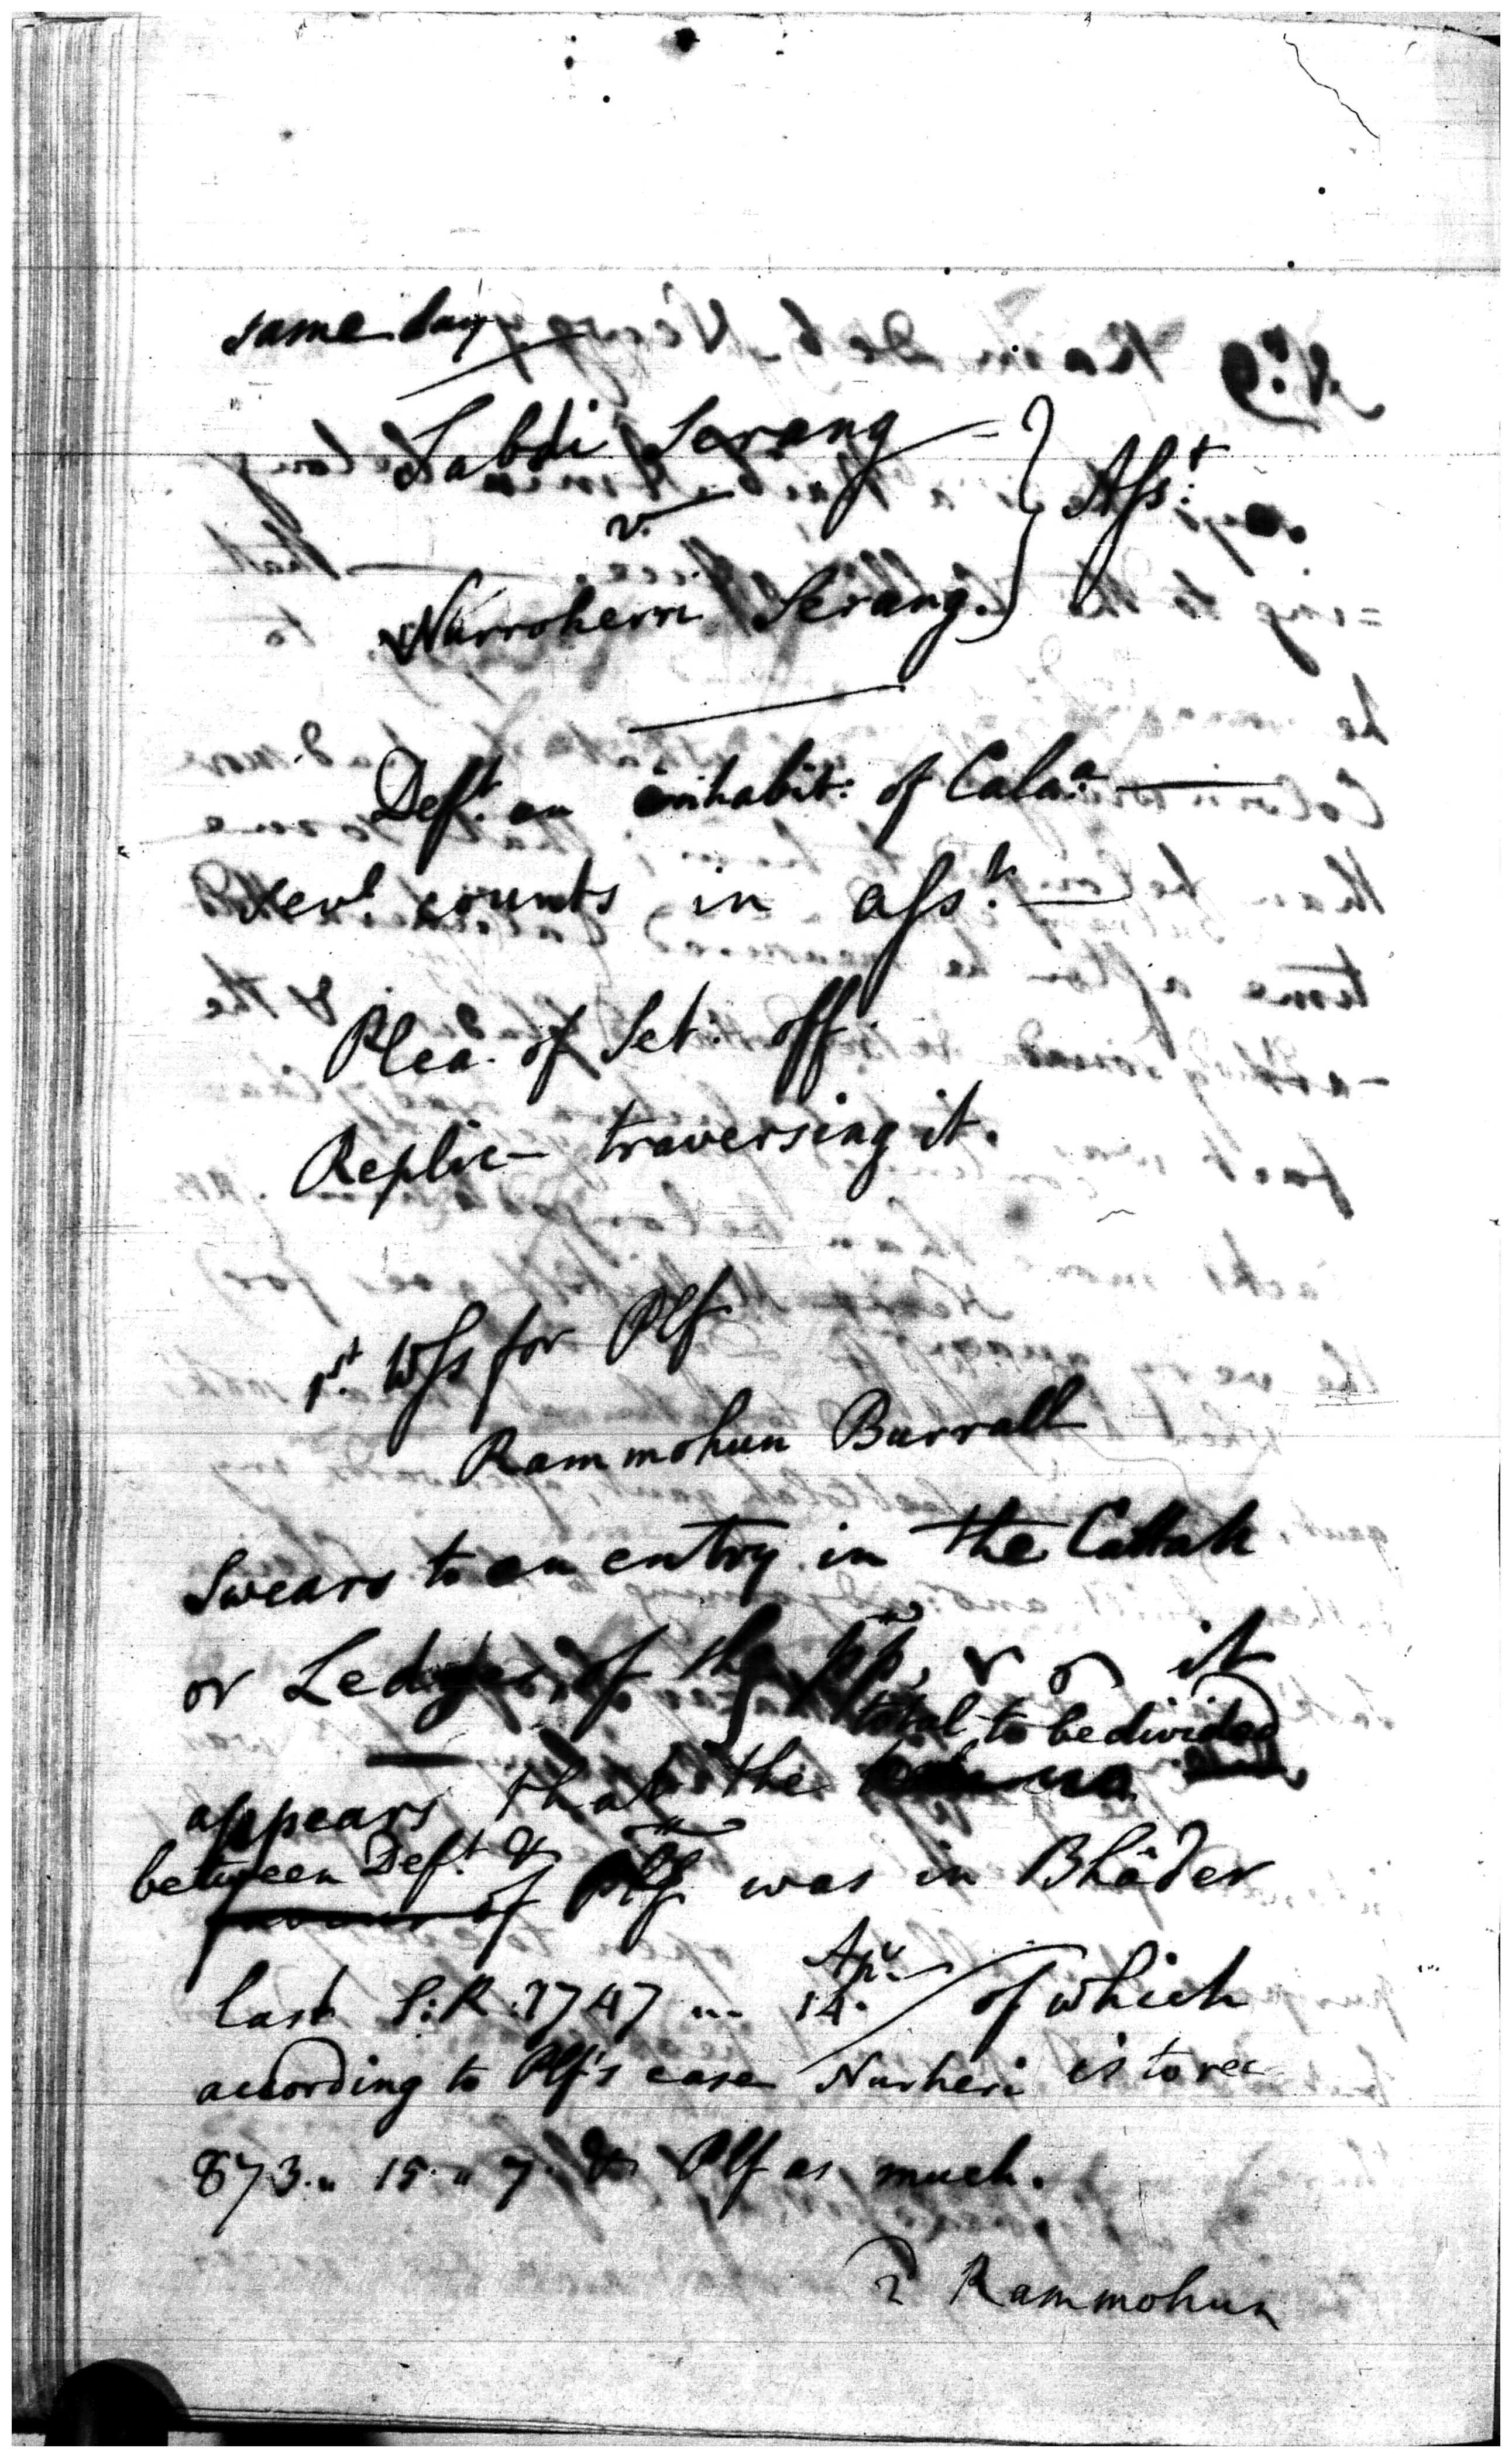 same day
Sabdi Serang
v.
Nurroherri Serang. } Ass:t
Deft. an inhabit: of Cala:a
sevl. counts in ass:t
Plea of Set: off
Replic- traversing it.
1st. Wss for Plf
Rammohun Burrall
Swears to an entry in the Cattah
or Ledger, of the pp, & it
total to be divided
appears that the
between Deft. &
favour of Plf was in Bhâder
last S:R: 1747 " 14. of which
according to Plf's case Nurheri is to rec
873 " 15 " 7. & Plf as much.
Rammohun